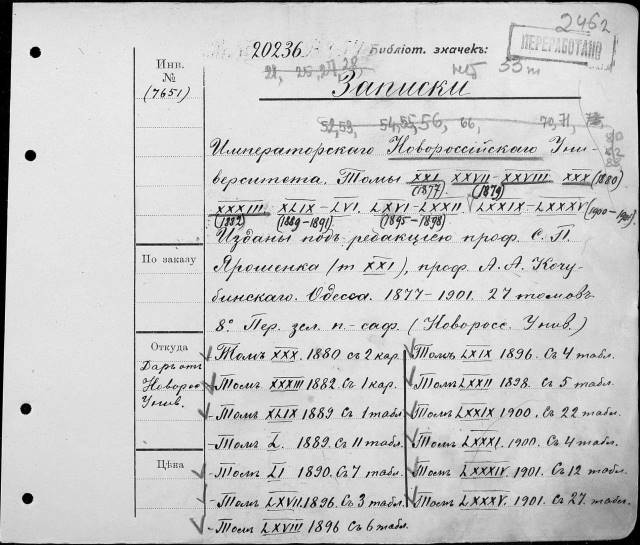 2462
ПЕРЕРАБОТАНО
20236
Библіот. значекъ:
Инв.
№
(7651)
21, 25, 27, 28
№5 33т
Записки
52, 53, 54, 55, 56, 66, 70, 71,
Императорскаго Новороссійскаго Уни-
верситета. Томы XXI XXVII-XXVIII XXX (1880)
(1877) (1879)
XXXIII XLIX - LVI. LXVI-LXXII LXXIX-LXXXV (1900-1901).
(1882) (1889-1891) (1895-1898)
Изданы подъ редакціею проф. С. П.
По заказу
Ярошенка (т XXI), проф. А. А. Кочу-
бинскаго. Одесса. 1877-1901. 27 томовъ
8º Пер. зел. п-саф. (Новоросс. Унив.)
Откуда
Даръ отъ
Новорос
Унив.
Томъ XXX. 1880 съ 2 кар.
-Томъ XXXIII 1882. Съ 1 кар.
-Томъ XLIX 1889 Съ 1 табл.
-Томъ L. 1889. Съ 11 табл.
Цѣна
-Томъ LI 1890. Съ 7 табл.
-Томъ LXVII. 1896. Съ 3 табл.
-Томъ LXVIII 1896 Съ 6 табл.
Томъ LXIX 1896. Съ 4 табл.
Томъ LXXII 1898. Съ 5 табл.
Томъ LXXIX 1900. Съ 22 табл.
Томъ LXXXI. 1900. Съ 4 табл.
Томъ LXXXIV. 1901. Съ 12 табл.
Томъ LXXXV. 1901. Съ 27. табл.